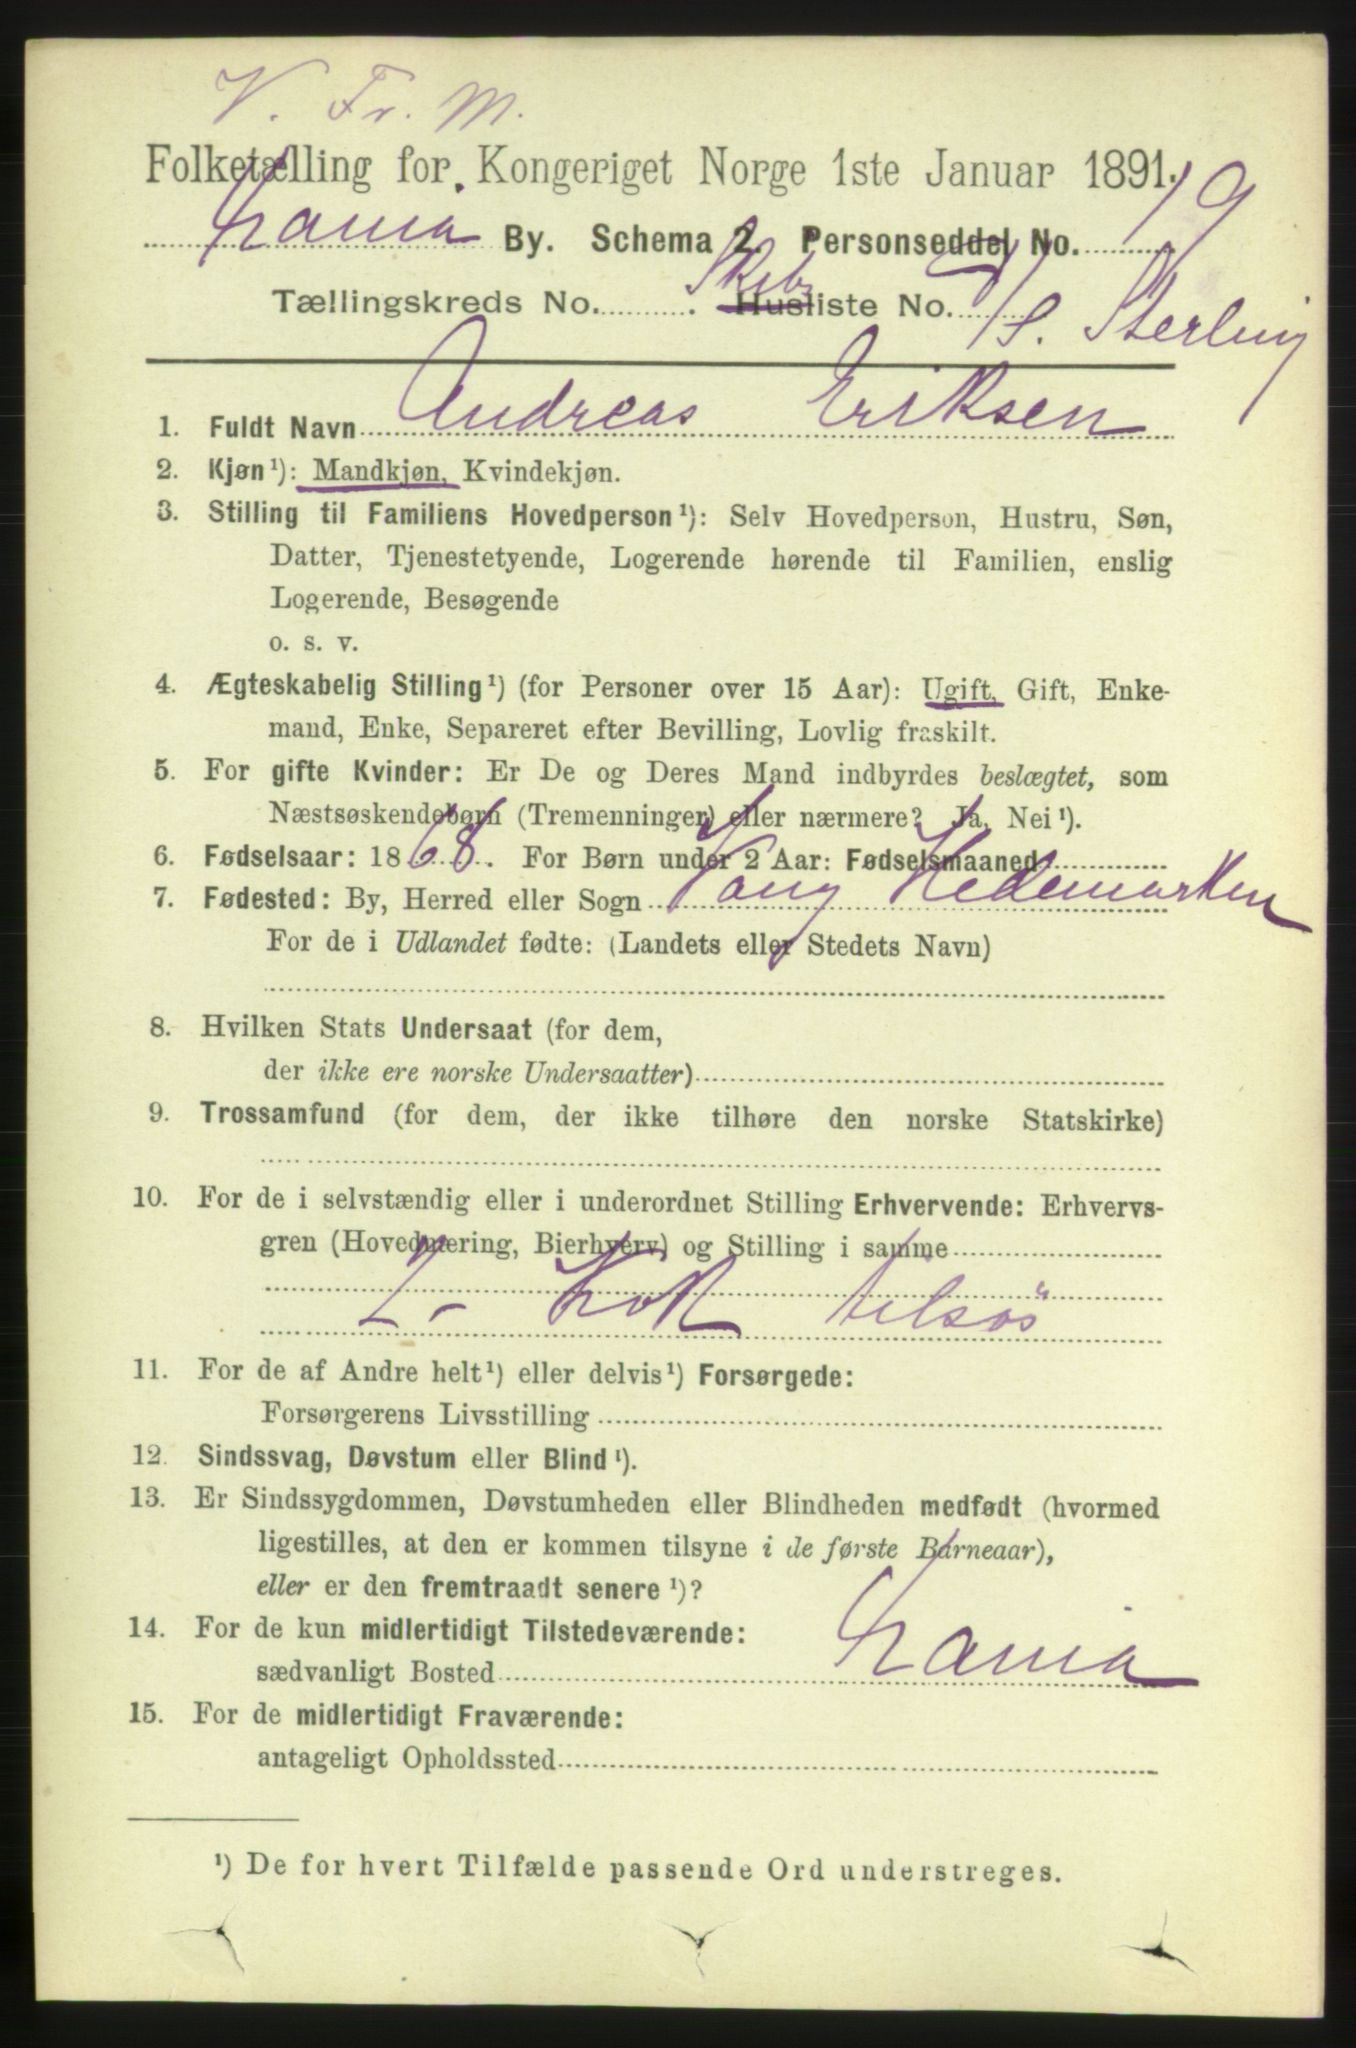 V. Fr. M.
Folketælling for Kongeriget Norge 1ste Januar 1891.
Xania By. Schema 2. Personseddel No. 19
Tællingskreds No. Skibsliste No. D/S. Sterling
1. Fuldt Navn Andreas Eriksen
2. Kjøn¹): Mandkjøn, Kvindekjøn.
3. Stilling til Familiens Hovedperson¹): Selv Hovedperson, Hustru, Søn,
Datter, Tjenestetyende, Logerende hørende til Familien, enslig
Logerende, Besøgende
o. s. v.
4. Ægteskabelig Stilling¹) (for Personer over 15 Aar): Ugift, Gift, Enke-
mand, Enke, Separeret efter Bevilling, Lovlig fraskilt.
5. For gifte Kvinder: Er De og Deres Mand indbyrdes beslægtet, som
Næstsøskendebørn (Tremenninger) eller nærmere? Ja, Nei¹).
6. Fødselsaar: 1868. For Børn under 2 Aar: Fødselsmaaned
7. Fødested: By, Herred eller Sogn Vang Hedemarken
For de i Udlandet fødte: (Landets eller Stedets Navn)
8. Hvilken Stats Undersaat (for dem,
der ikke ere norske Undersaatter)
9. Trossamfund (for dem, der ikke tilhøre den norske Statskirke)
10. For de i selvstændig eller i underordnet Stilling Erhvervende: Erhvervs-
gren (Hovednæring, Bierhverv) og Stilling i samme
2- Kok tilsøs
11. For de af Andre helt¹) eller delvis¹) Forsørgede:
Forsørgerens Livsstilling
12. Sindssvag, Døvstum eller Blind¹).
13. Er Sindssygdommen, Døvstumheden eller Blindheden medfødt (hvormed
ligestilles, at den er kommen tilsyne i de første Barneaar),
eller er den fremtraadt senere¹)?
14. For de kun midlertidigt Tilstedeværende:
sædvanligt Bosted Xania
15. For de midlertidigt Fraværende:
antageligt Opholdssted
¹) De for hvert Tilfælde passende Ord understreges.